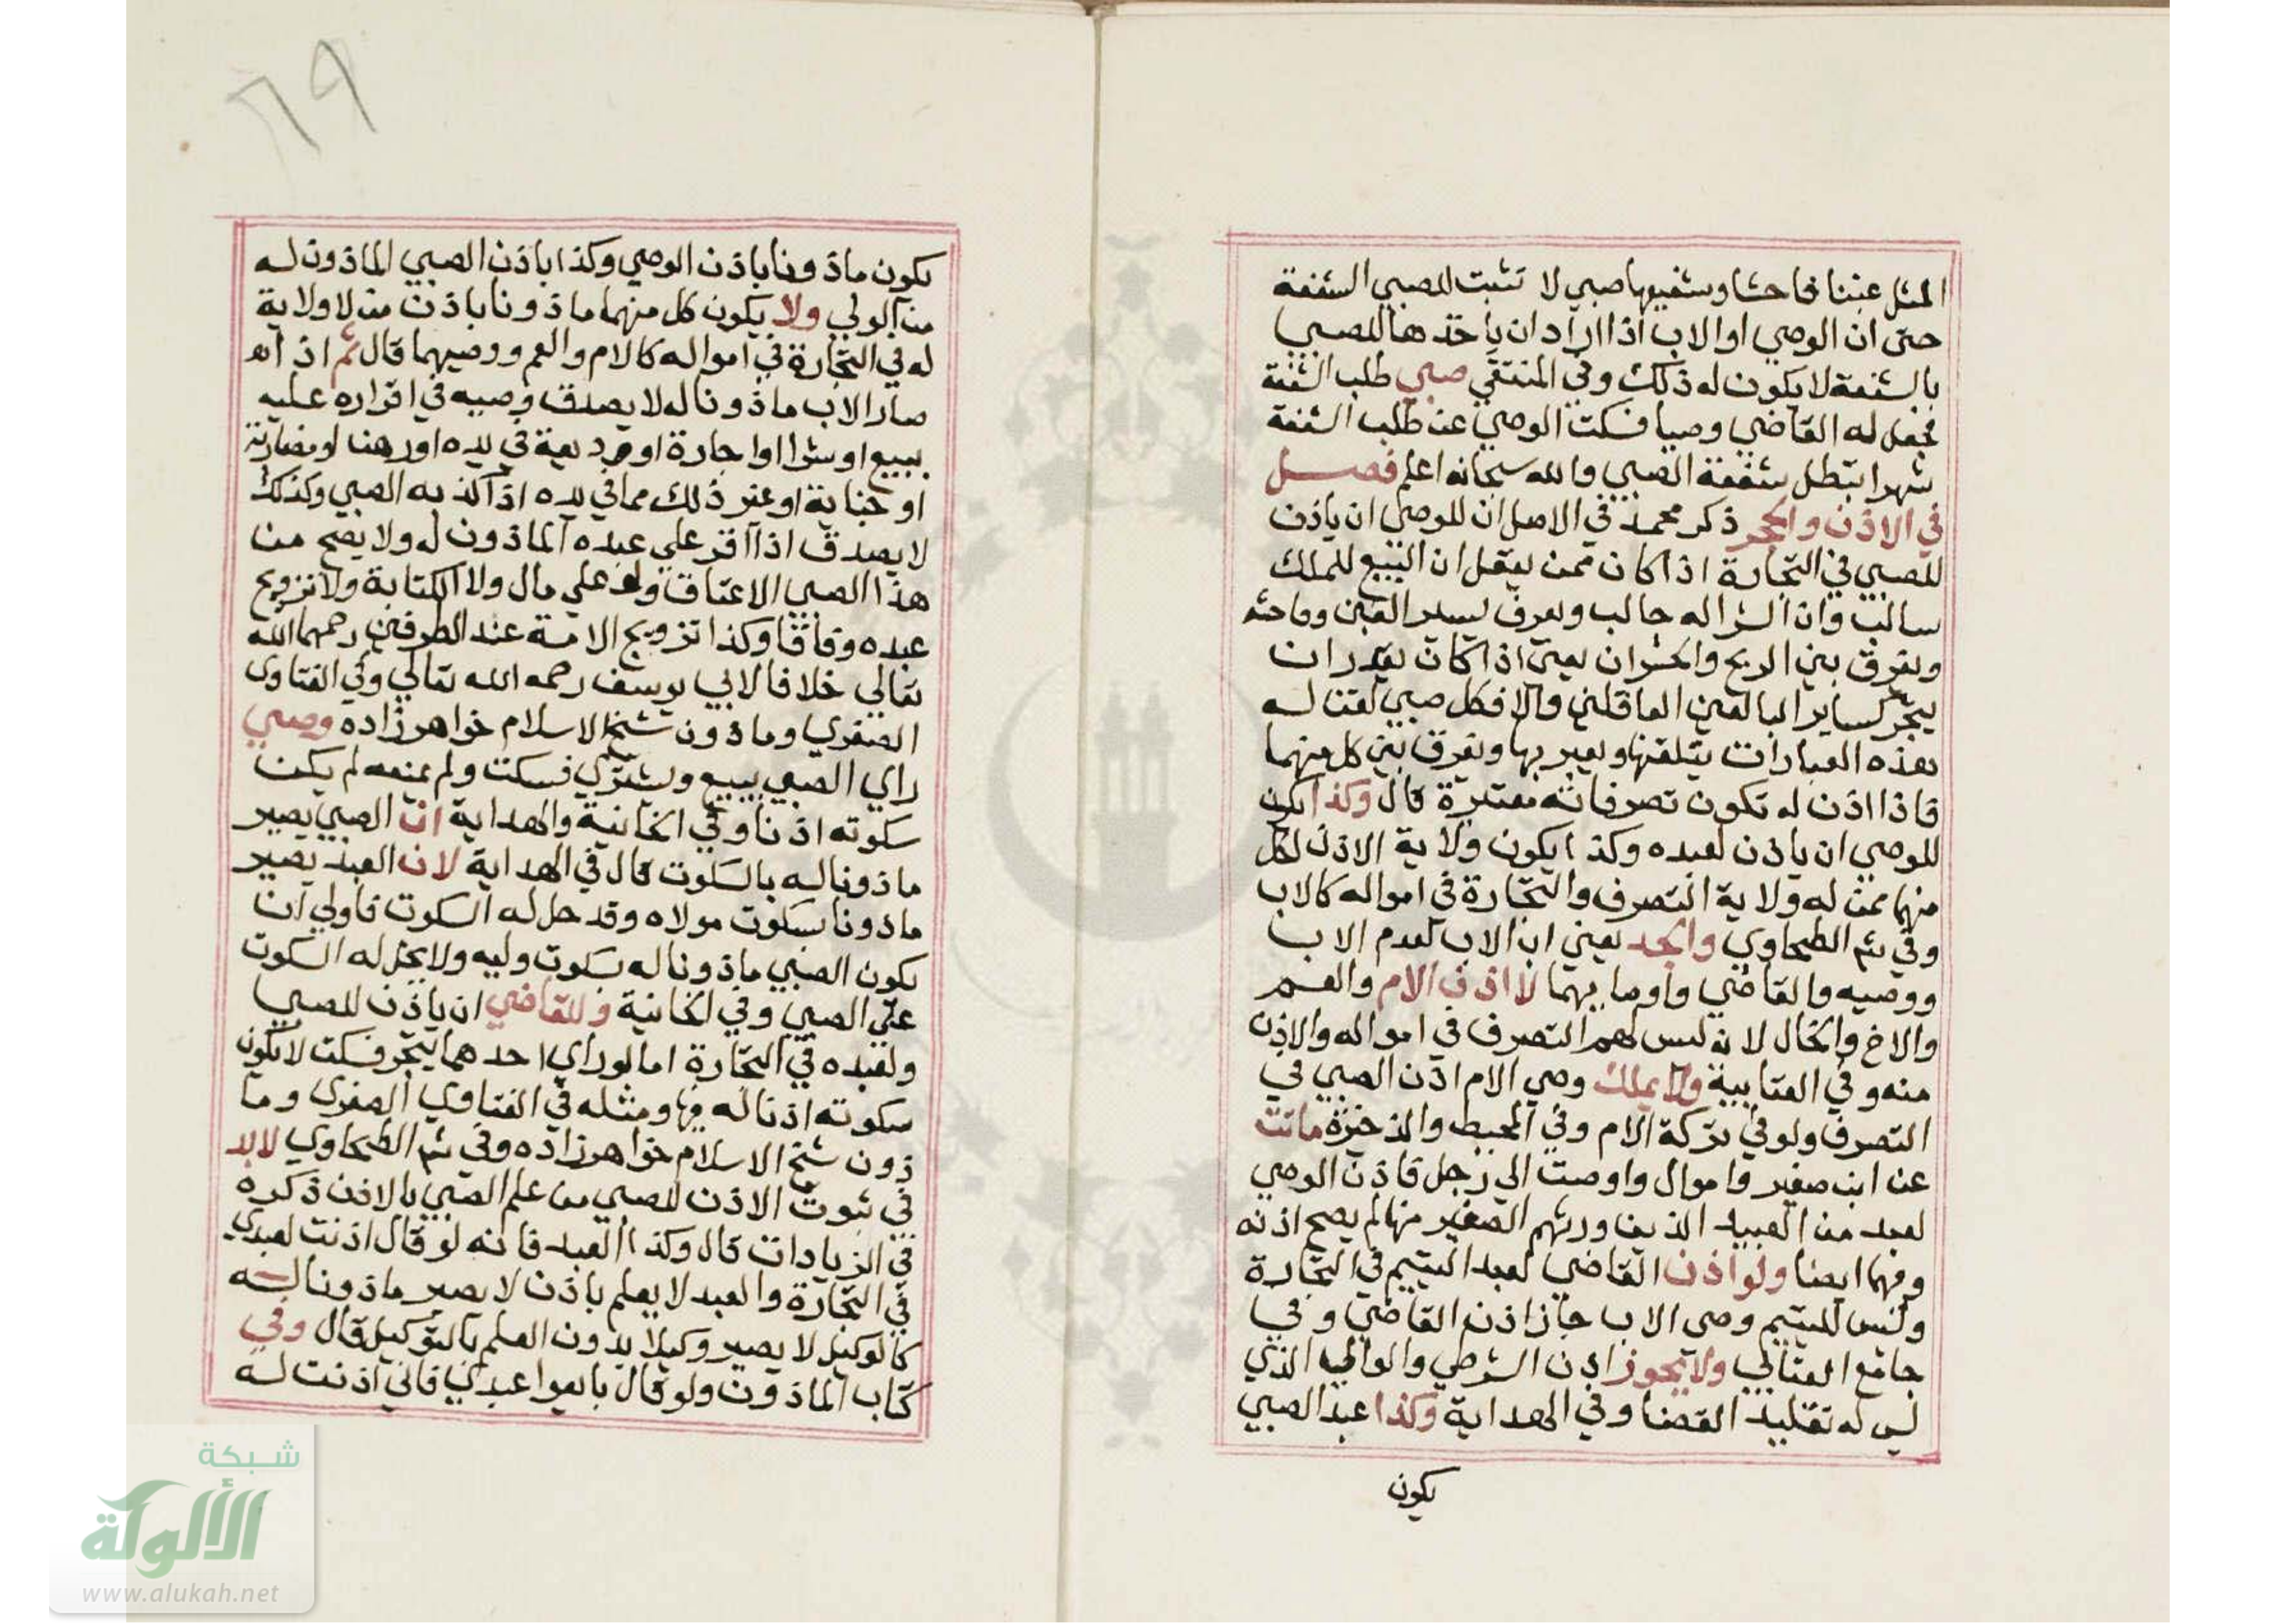 المثل غبنا فاحشا وشفيعها صبي لا تثبت للصبي الشفعة
حتى ان الوصي او الاب اذا اراد ان ياخذها للصبي
بالشفعة لا يكون له ذلك وفي المنتقي صبي طلب الشفعة
فجعل له القاضي وصيا فسكت الوصي عن طلب الشفعة
شهرا تبطل شفعة الصبي والله سبحانه اعلم فصل
في الاذن والحجر ذكر محمد في الاصل ان للوصي ان ياذن
للصبي في التجارة اذا كان ممن يعقل ان البيع للملك
سالب وان الشرا له جالب ويعرف يسير الغبن وفاحشه
ويفرق بين الربح والخسران يعني اذا كان يقدر ان
يتجر كساير البالغين العاقلين والا فكل صبي لقنا له
بهذه العبارات يتلقنها ويعبر بها ويفرق بين كل منهما
فاذا اذن له تكون تصرفاته معتبرة قال وكذا يكون
للوصي ان ياذن لعبده وكذا يكون ولاية الاذن لكل
منهما ممن له ولاية التصرف والتجارة في امواله كالاب
وفي شم الطحاوي والجد يعني اب الاب لعدم الاب
ووصيه والقاضي واوصايهما لا اذن الام والعم
والاخ والخال لانه ليس لهم التصرف في امواله والاذن
منه وفي العتابية ولا يملك وصي الام اذن الصبي في
التصرف ولو في تركة الام وفي المحيط والذخيرة ماتت
عن ابن صغير واموال واوصت الي رجل فاذن الوصي
لعبد من العبيد الذين ورثهم الصغير منها لم يصح اذنه
وفيهما ايضا ولو اذن القاضي لعبد اليتيم في التجارة
وليس لليتيم وصي الاب جاز اذن القاضي وفي
جامع العتابي ولا يجوز اذن الشرطي والوالي الذي
ليس له تقليد القضا وفي الهداية وكذا عبد الصبي
يكون
٦٩
يكون ماذونا باذن الوصي وكذا باذن الصبي الماذون له
من الولي ولا يكون كل منهما ماذونا باذن من لا ولاية
له في التجارة في امواله كالام والعم ووصيهما قال ثم اذا
صار الاب ماذونا له لا يصدق وصيه في اقراره عليه
ببيع او شرا او اجارة او وديعة في يده او رهنا او مضاربة
او جناية او غير ذلك مما في يده اذا كذبه الصبي وكذلك
لا يصدق اذا اقر علي عبده الماذون له ولا يصح من
هذا الصبي الاعتاق ولو علي مال ولا الكتابة ولا تزويج
عبده وفاقا وكذا تزويج الامة عند الطرفين رحمهما الله
تعالي خلافا لابي يوسف رحمه الله تعالي وفي الفتاوي
الصغري وماذون شيخ الاسلام خواهرزاده وصي
راي الصبي يبيع ويشتري فسكت ولم يمنعه لم يكن
سكوته اذنا وفي الخانية والهداية ان الصبي يصير
ماذونا له بالسكوت قال في الهداية لان العبد يصير
ماذونا بسكوت مولاه وقد حل له السكوت فاولي ان
يكون الصبي ماذونا له بسكوت وليه ولا يحل له السكوت
علي الصبي وفي الخانية وللقاضي ان ياذن للصبي
ولعبده في التجارة اما لو راي احدهما يتجر فسكت لا يكون
سكوته اذنا له فيها ومثله في الفتاوي الصغري وما
ذون شيخ الاسلام خواهرزاده وفي شم الطحاوي لا بد
في ثبوت الاذن للصبي من علم الصبي بالاذن ذكره
في الزيادات قال وكذا العبد فانه لو قال اذنت لعبدي
في التجارة والعبد لا يعلم باذن لا يصير ماذونا له
كالوكيل لا يصير وكيلا بدون العلم بالتوكيل قال وفي
كتاب الماذون ولو قال بايعوا عبدي فاني اذنت له
شبكة
الألوكة
www.alukah.net